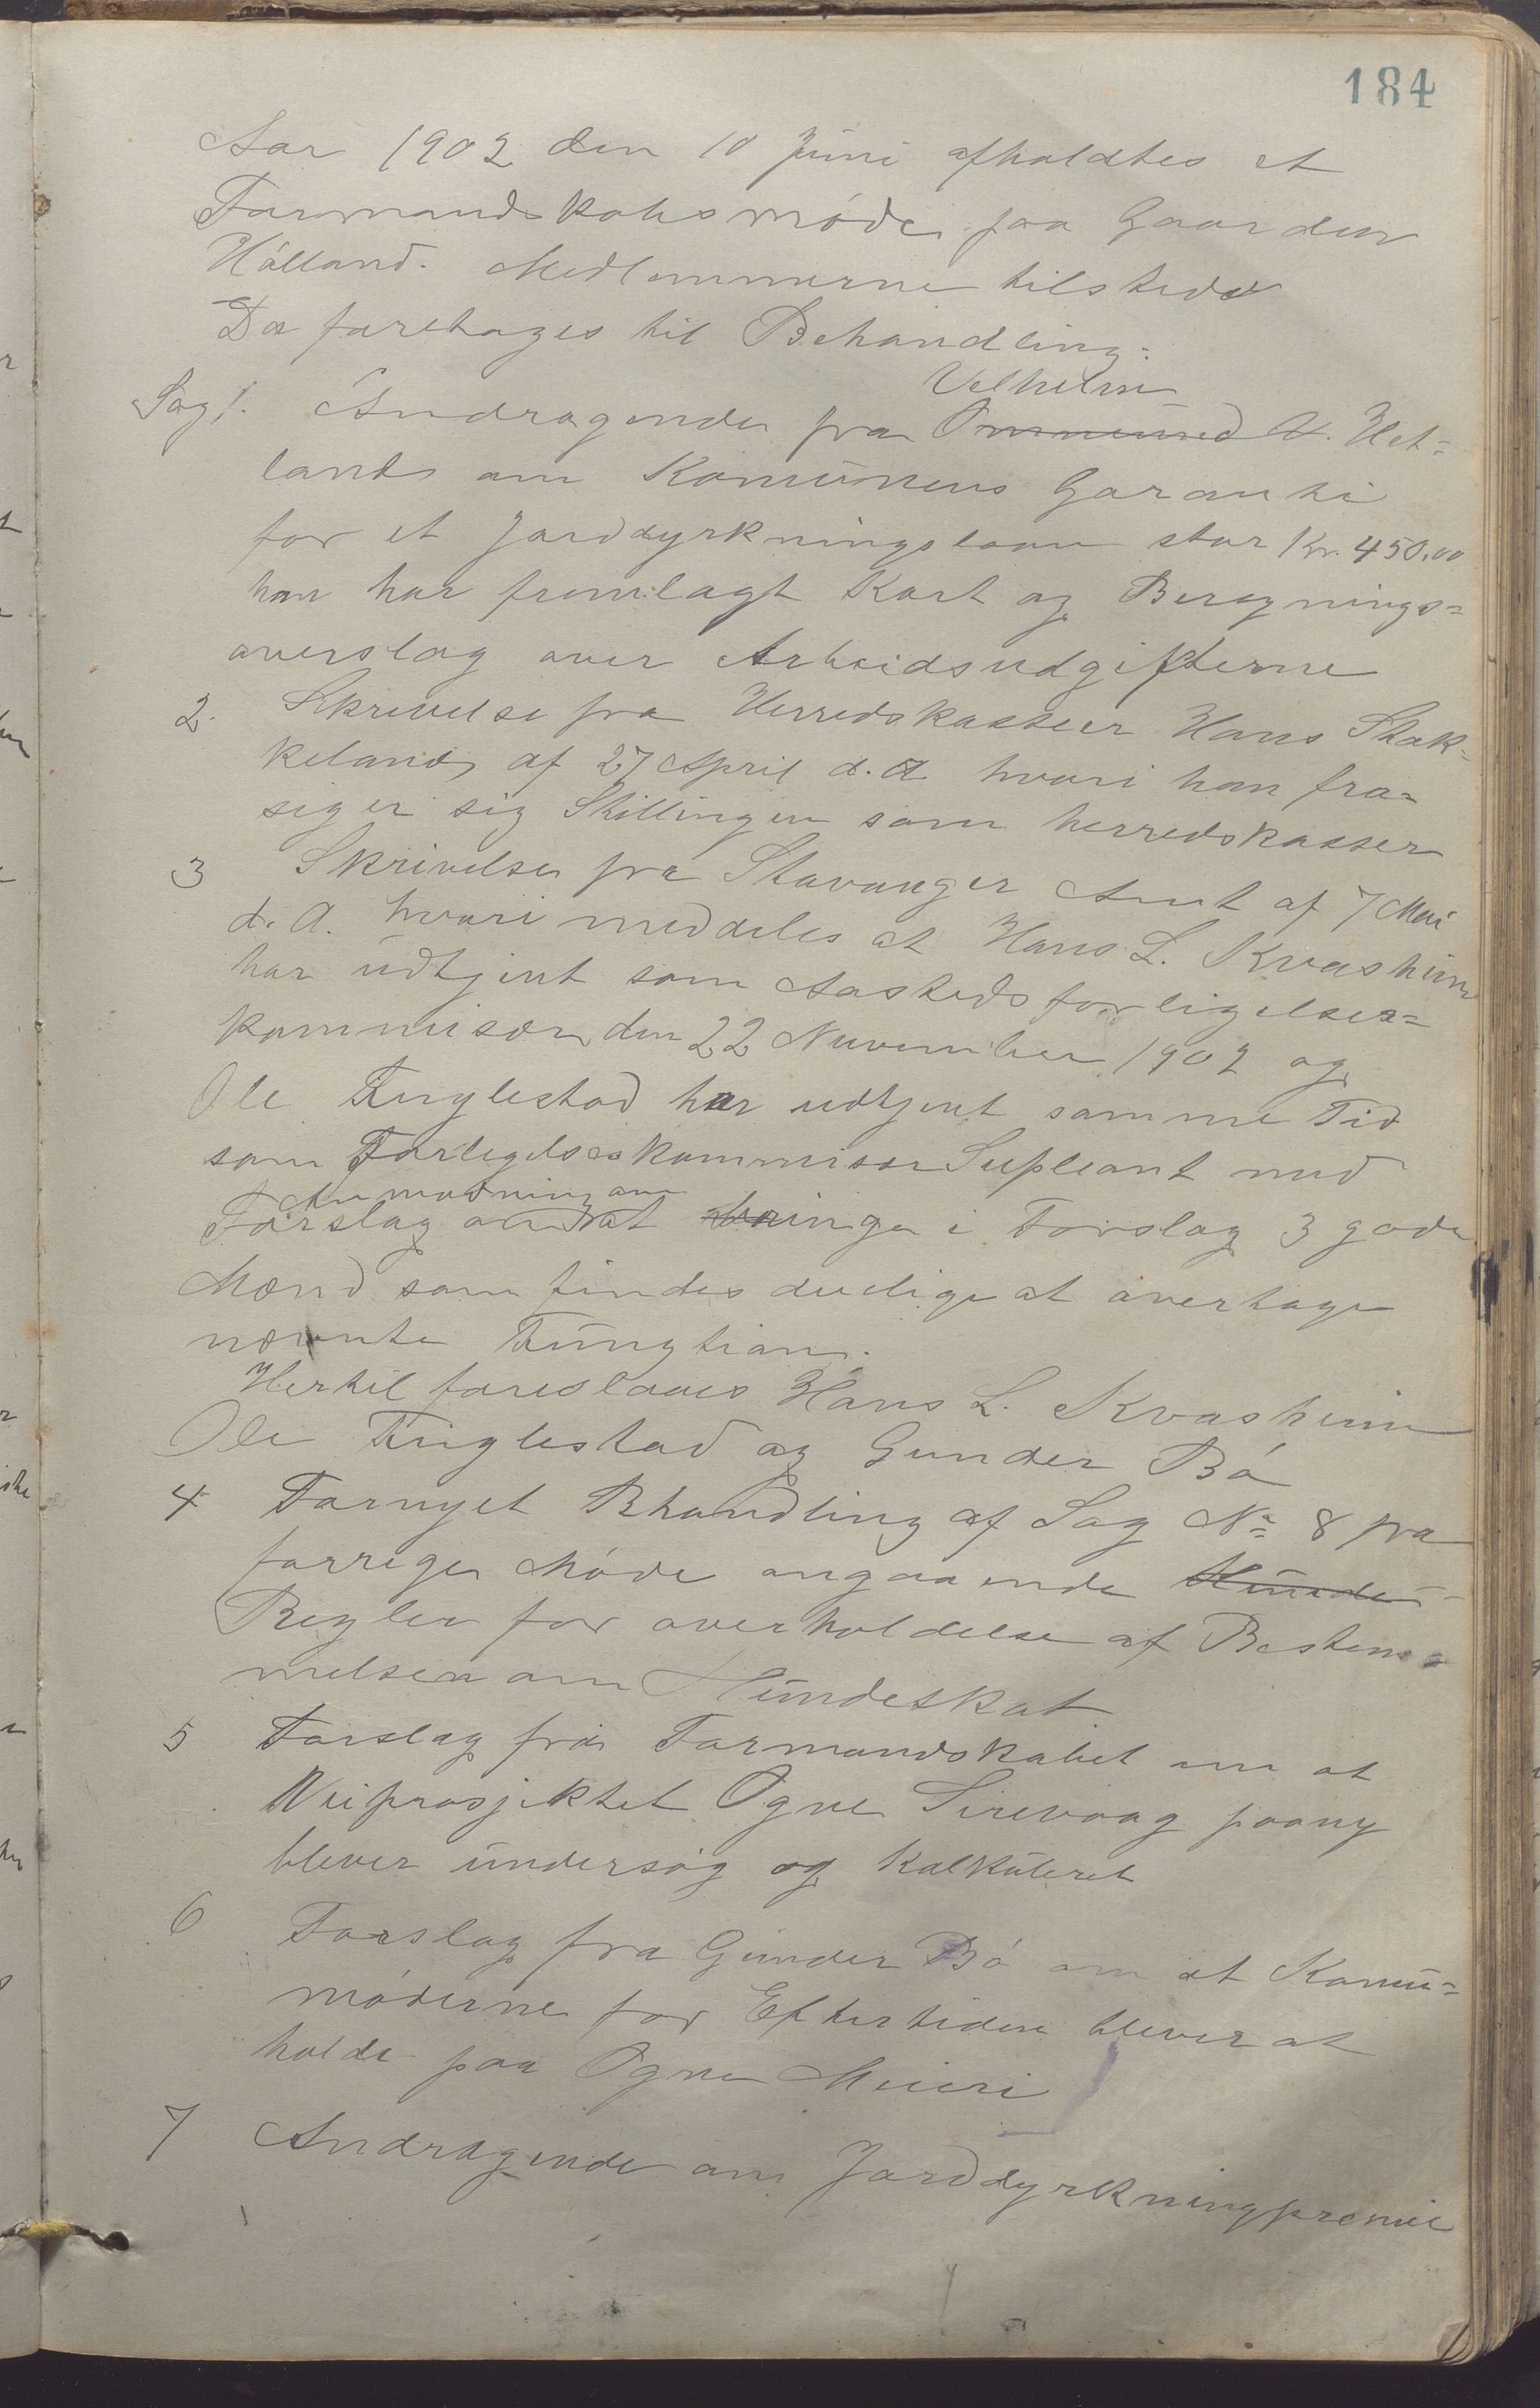 184
Aar 1902 den 10 Juni afholdtes et
Formandskabsmøde paa Gaarden
Hålland. Medlemmerne tilstede
Da foretoges til Behandling:
Velhelm
Sag 1. Andragende fra Ommund A. Het=
land om Komunens Garanti
for et Jorddyrkningslaan stor Kr. 450,00
han har fremlagt Kart og Beregnings=
overslag over Arbeidsudgifterne
2. Skrivelse fra Herredskasseer Hans Stok=
keland af 27 April d.A hvori han fra=
siger sig Stillingen som herredskasser
3 Skrivelse fra Stavanger Amt af 7 Mai
d.A. hvori meddeles at Hans L. Kvasheim
har udtjent som Aastedsforligelses=
kommisær den 22 November 1902 og
Ole Tuglestad har udtjent samme Tid
som Forlegelseskommisær Supleant med
Anmodning om
Forslag om at bringe i Forslag 3 gode
Mænd som findes duelige at overtage
nævnte Fungtion.
Hertil foreslaaes Hans L. Kvasheim
Ole Fuglestad og Gunder Bø
4 Fornyet Bhandling af Sag No 8 fra
forrige Møde angaaende Hunde
Regler for overholdelse af Bestem=
melsen om Hundeskat
5 Forslag fra Formandskabet om at
Veiprosjektet Ogne Sirevaag paany
blever undersøg og kalkuleret
6 Forslag fra Gunder Bø om at Komu=
møderne for Eftertiden blever at
holde paa Ogne Meieri
7 Andragende om Jorddyrkningpremie